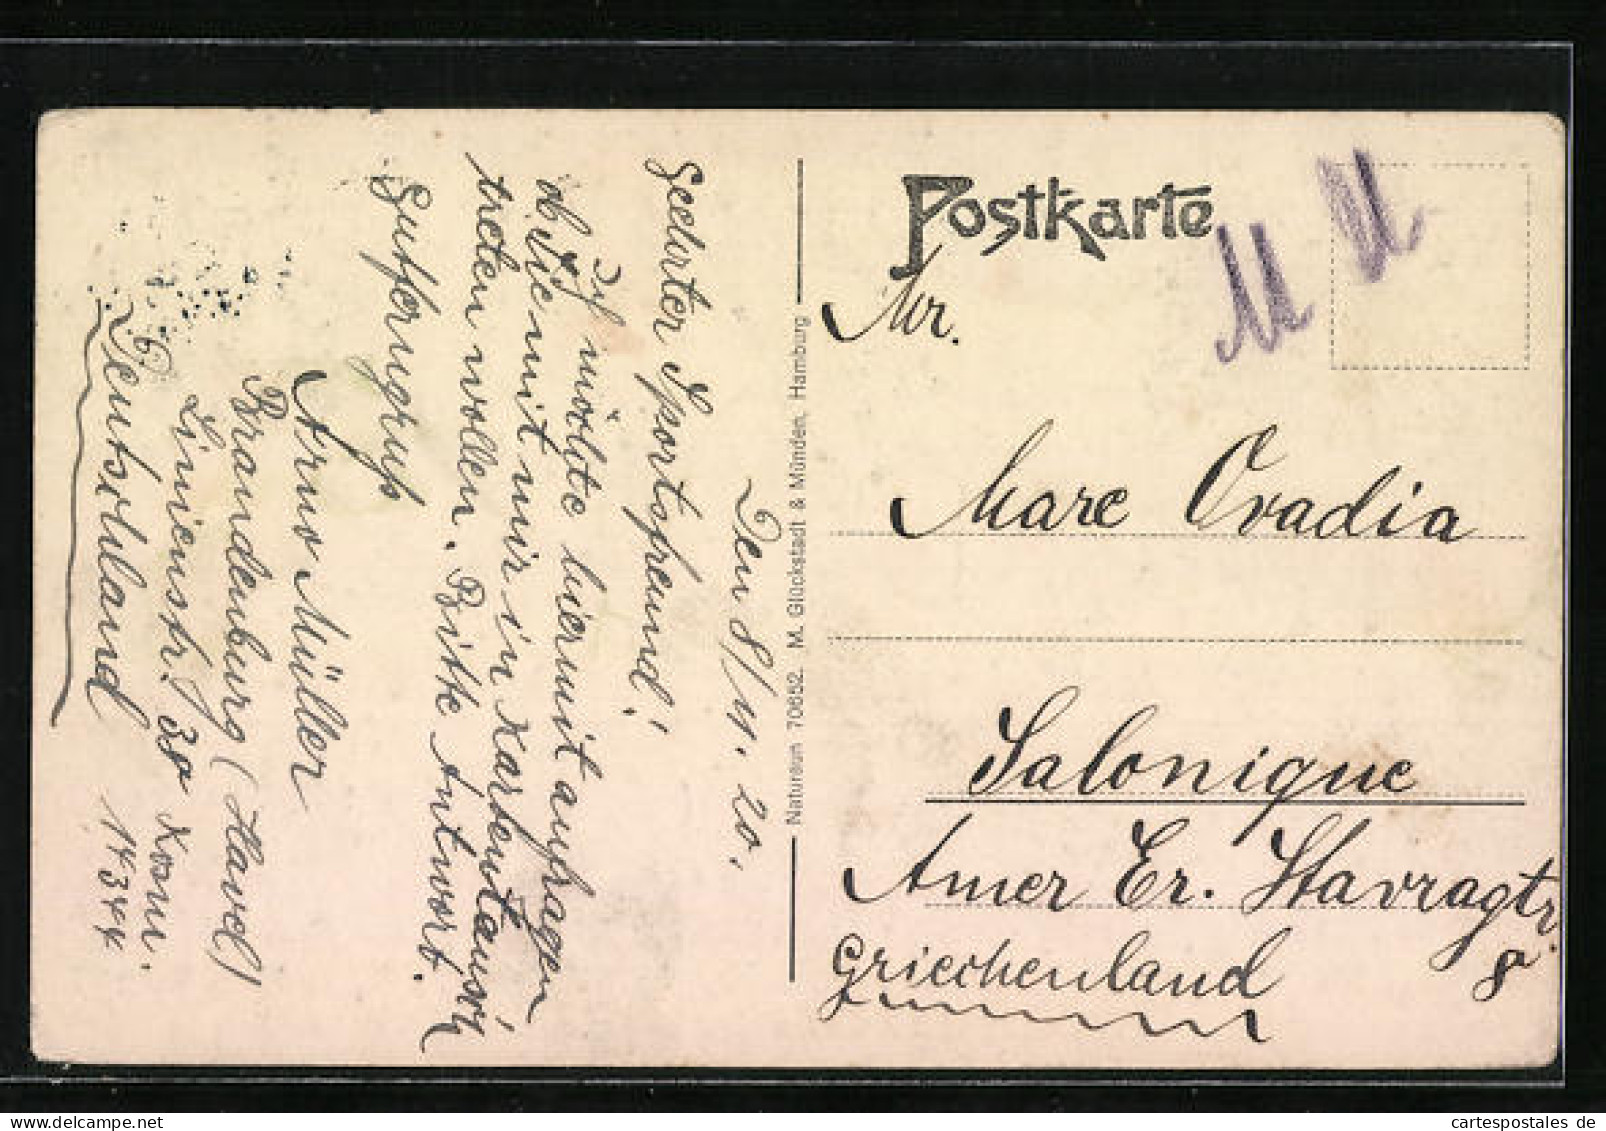 Den 8/11. 20.
Geehrter Sportsfreund!
Ich möchte hiermit anfragen
ob Sie mit mir in Kartentausch
treten wollen. Bitte Antwort.
Arno Müller
Brandenburg (Havel)
Linienstr. 30
Deutschland 14344
Naturaum 70652. M. Glückstadt & Münden, Hamburg
Postkarte
M M
Mr.
Marc Ovadia
Salonique
Amer Er. Stavragtr.
8
Griechenland
cartespostales de